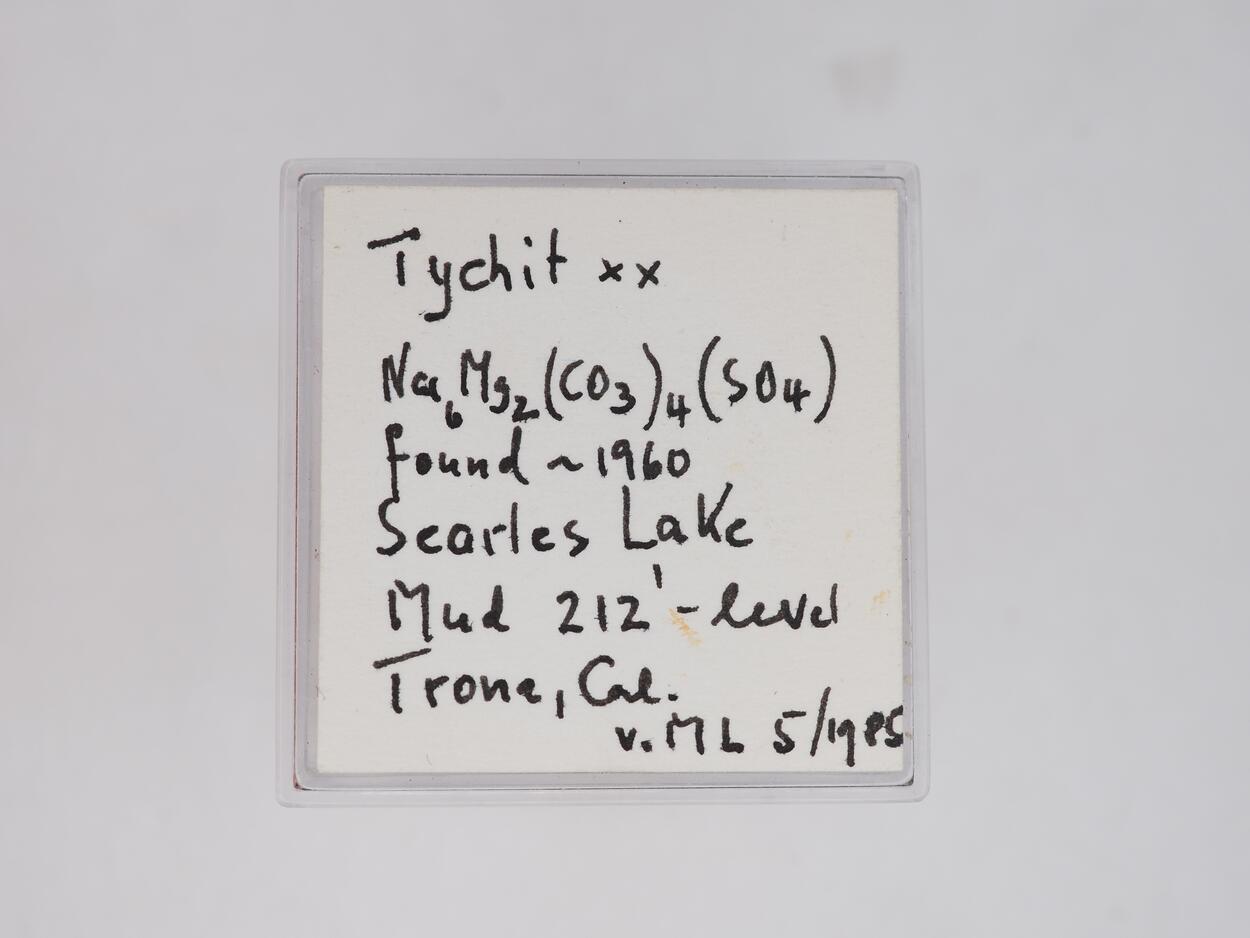 Tychit xx
Na₆Mg₂(CO₃)₄(SO₄)
found ~1960
Searles Lake
Mud 212'-level
Trona, Cal.
v. ML 5/1985